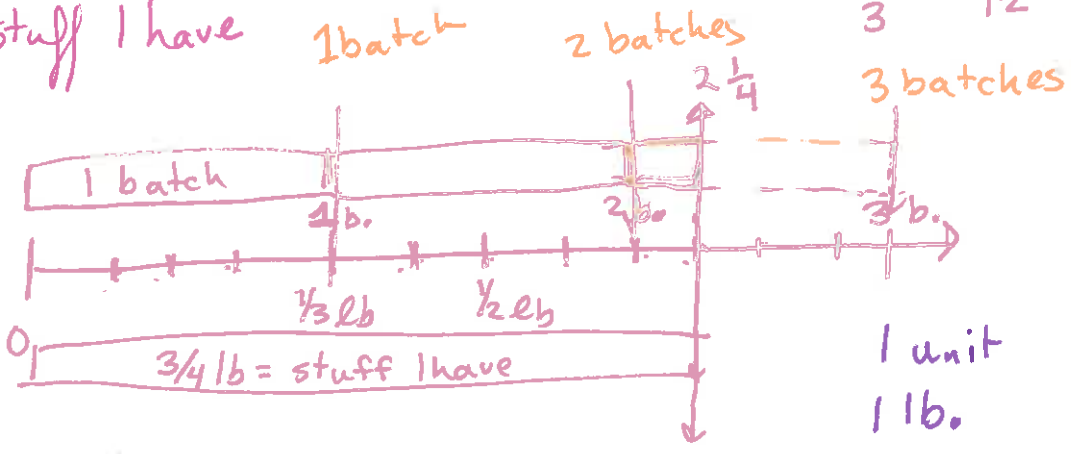 stuff I have
1 batch
2 batches
2 1/4
3
12
3 batches
1 batch
1 b.
2 b.
3 b.
1/3 lb
1/2 lb
0
3/4 lb = stuff I have
1 unit
1 lb.